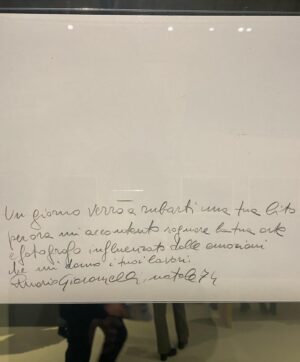 Un giorno verrò a rubarti una tua lito
per ora mi accontento sognare la tua arte
e fotografo influenzato dalle emozioni
che mi danno i tuoi lavori.
Mario Giacomelli, natale 74